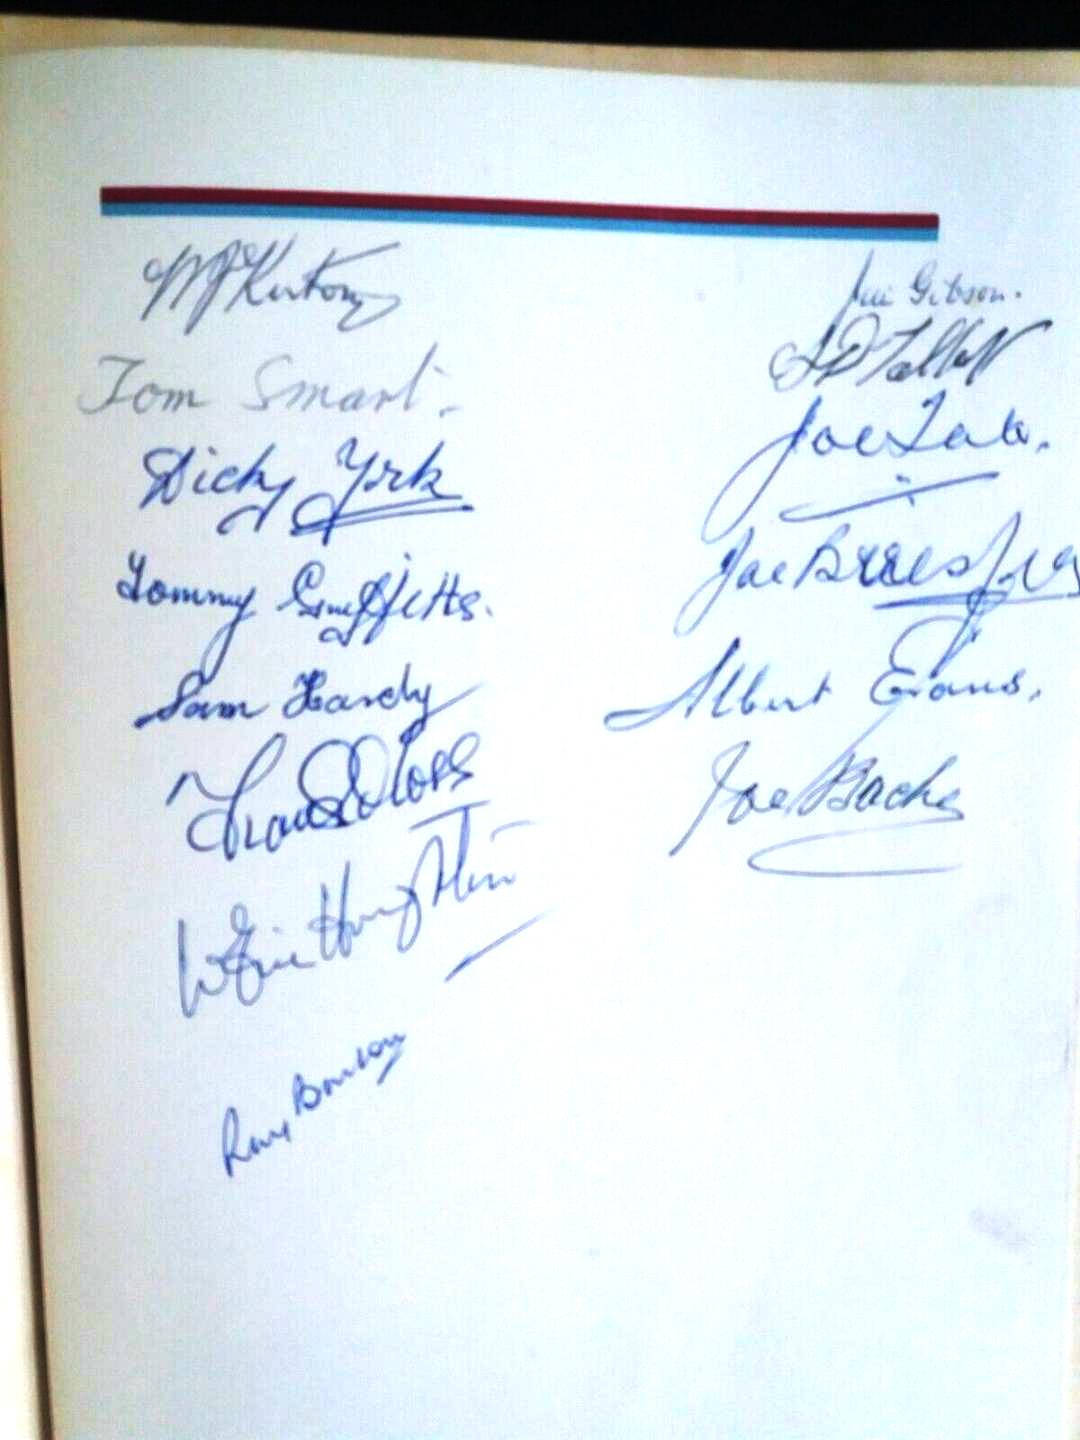 Tom Smart.
Dicky York
Tommy Griffiths.
Sam Hardy
Frank Moss
W Eric Houghton
Ray Bowton
Jim Gibson.
Joe Tate.
Joe Beresford
Albert Evans.
Joe Bache